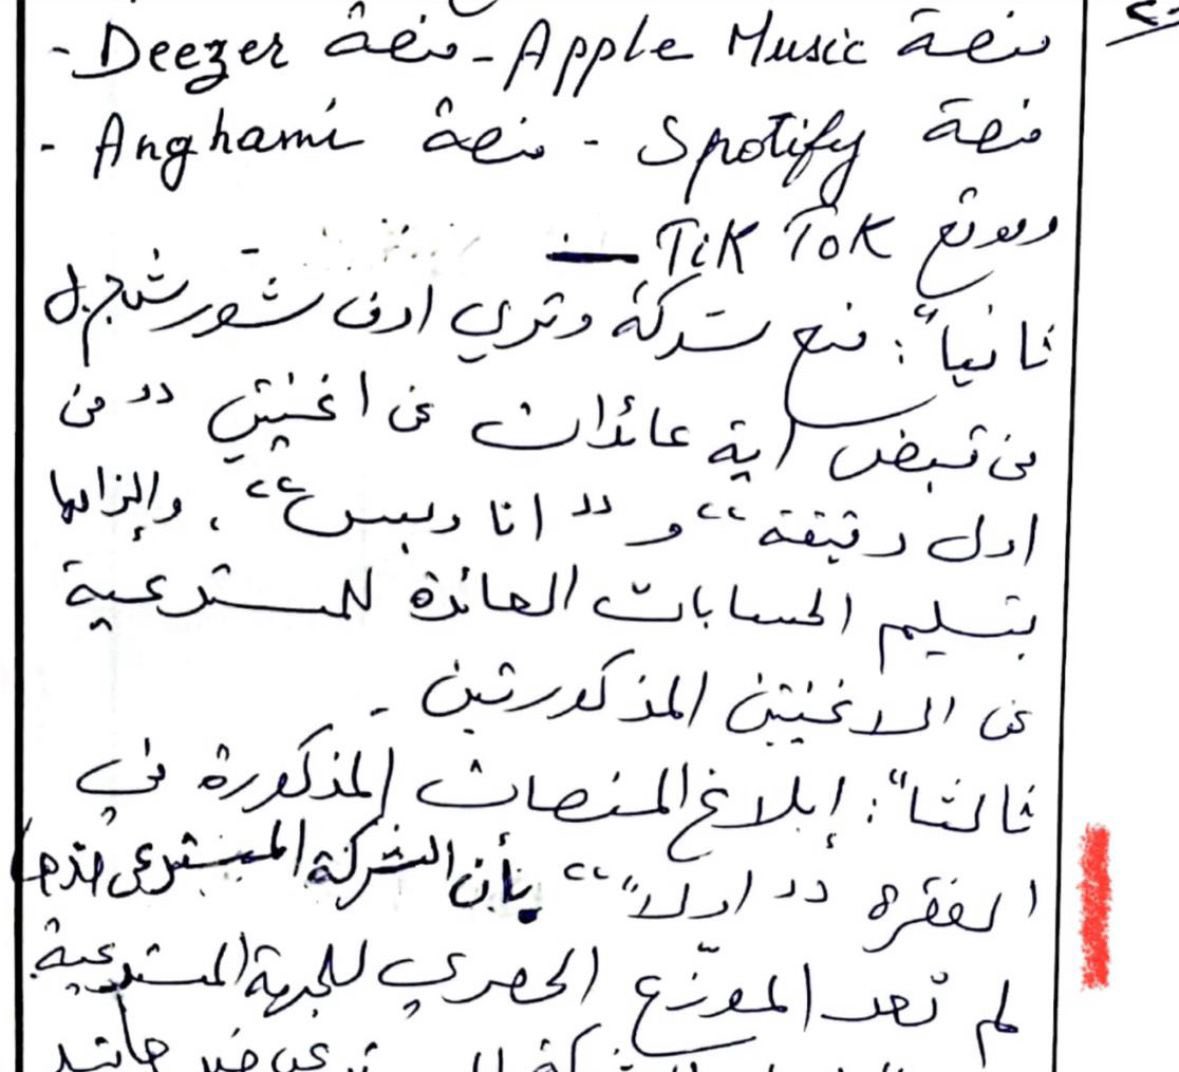 منصة Apple Music - منصة Deezer -
منصة Spotify - منصة Anghami -
وموقع TiK ToK
ثانياً: منع شركة وتري اوف شور ش.م.ل
من قبض اية عائدات عن اغنيتي "من
اول دقيقة" و "انا وبس"، وإلزامها
بتسليم الحسابات العائدة للمستدعية
عن الاغنيتين المذكورتين.
ثالثاً: إبلاغ المنصات المذكورة في
الفقرة "اولاً" بأن الشركة المستدعى ضدها
لم تعد الموزّع الحصري للجهة المستدعية